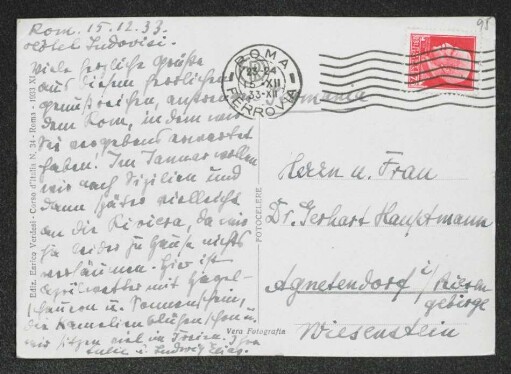 Rom. 15.12.33.
Hotel Ludovisi.
Viele herzliche Grüße
aus diesem herrlichen
genußreichen,
dem Rom, in dem wir
Sie vergebens erwartet
haben. Im Januar wollen
wir nach Sizilien und
dann später vielleicht
an die Riviera, da wir
ja leider zu Hause nichts
versäumen. Hier ist
Aprilwetter mit Hagel-
schauern u. Sonnenschein,
die Kamelien blühen schon u.
wir sitzen viel im Freien. Ihre
u. Ludwig
98
ROMA
23-24
15·XII
33-XII
FERROVIA
Germania
Herrn u. Frau
Dr. Gerhart Hauptmann
Agnetendorf i/Riesen
gebirge
Wiesenstein
FOTOCELERE
Vera Fotografia
Ediz. Enrico Verdesi - Corso d'Italia N. 34 - Roma - 1933 XI